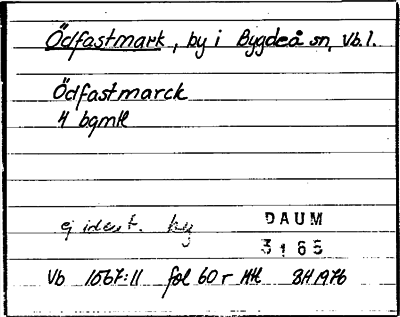 Ödfastmark, by i Bygdeå sn, Vb.l.
Ödfastmarck
4 bgmtl
ej ident. by
DAUM
3165
Vb 1567:11 fol 60 r Mtl BH 1976